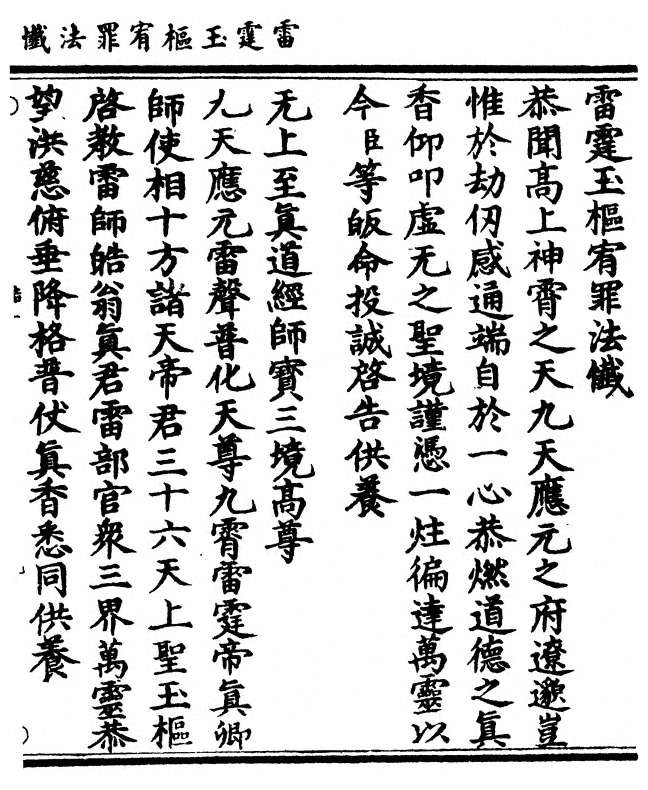 雷霆玉樞宥罪法懺
雷霆玉樞宥罪法懺
恭聞高上神霄之天九天應元之府遼邈豈
惟於劫仭感通端自於一心恭燃道德之眞
香仰叩虛无之聖境謹憑一炷徧達萬靈以
今臣等皈命投誠啓告供養
无上至眞道經師寶三境高尊
九天應元雷聲普化天尊九霄雷霆帝眞卿
師使相十方諸天帝君三十六天上聖玉樞
啓教雷師皓翁眞君雷部官衆三界萬靈恭
望洪慈俯垂降格普伏眞香悉同供養